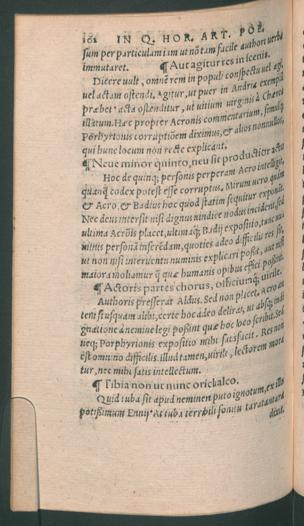 102 IN Q. HOR. ART. POE.
sum per particulam im ut nõ tam facile authori verba
immutaret. ¶ Aut agitur res in scenis.
Dicere vult, omnẽ rem in populi conspectu vel agi,
vel actam ostendi. Agitur, ut puer in Andria exempla
præbet: acta ostenditur, ut vitium virginis à Chærea
illatum. Hæc propter Acronis commentarium, simulq;
Porphyrionis corruptiõem diximus, & alios nonnullos,
qui hunc locum non recte explicant.
¶ Neue minor quinto, neu sit productior actu
Hoc de quinq; personis perperam Acro intelligit,
quanq̃ codex potest esse corruptus. Mirum vero quàm
& Acro, & Badius hoc quod statim sequitur exponãt.
Nec deus intersit nisi dignus vindice nodus inciderit, sed
ultima Acrõis placet, ultimaq; Badij expositio, tanc
minis personã inserẽdam, quoties adeo difficilis res sit,
ut non nisi interventu numinis explicari posſit, aut
maiora moliamur q̃ quæ humanis opibus effici posſint.
¶ Actoris partes chorus, officiumq; virile.
Authoris præferãt Aldus. Sed non placet. Acro au
tem si usquam alibi, certe hoc adeo delirat, ut absq; indi
gnatione à nemine legi posſint quæ hoc loco scribit. Sed
neq; Porphyrionis expositio mihi satisfacit. Res non
est omnino difficilis. illud tamen, virile, lectorem mora
tur, nec mihi satis intellectum.
¶ Tibia non ut nunc orichalco.
Quid tuba sit apud neminen puto ignotum, ex illo
potisſimum Ennij. At tuba terribili sonitu taratantara
dixit.